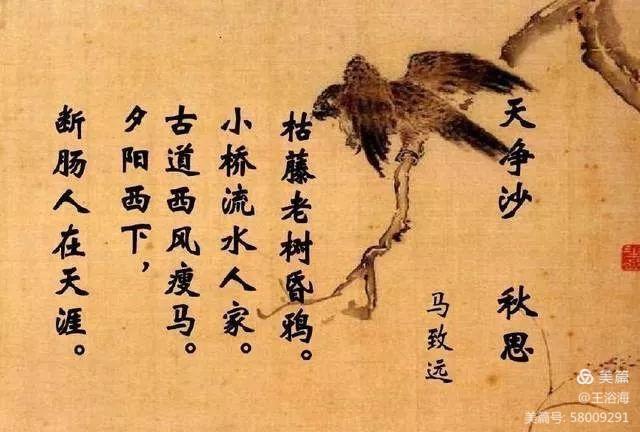 天争沙 秋思
马致远
枯藤老树昏鸦。
小桥流水人家。
古道西风瘦马。
夕阳西下，
断肠人在天涯。
美篇
@王浴海
美篇号: 58009291